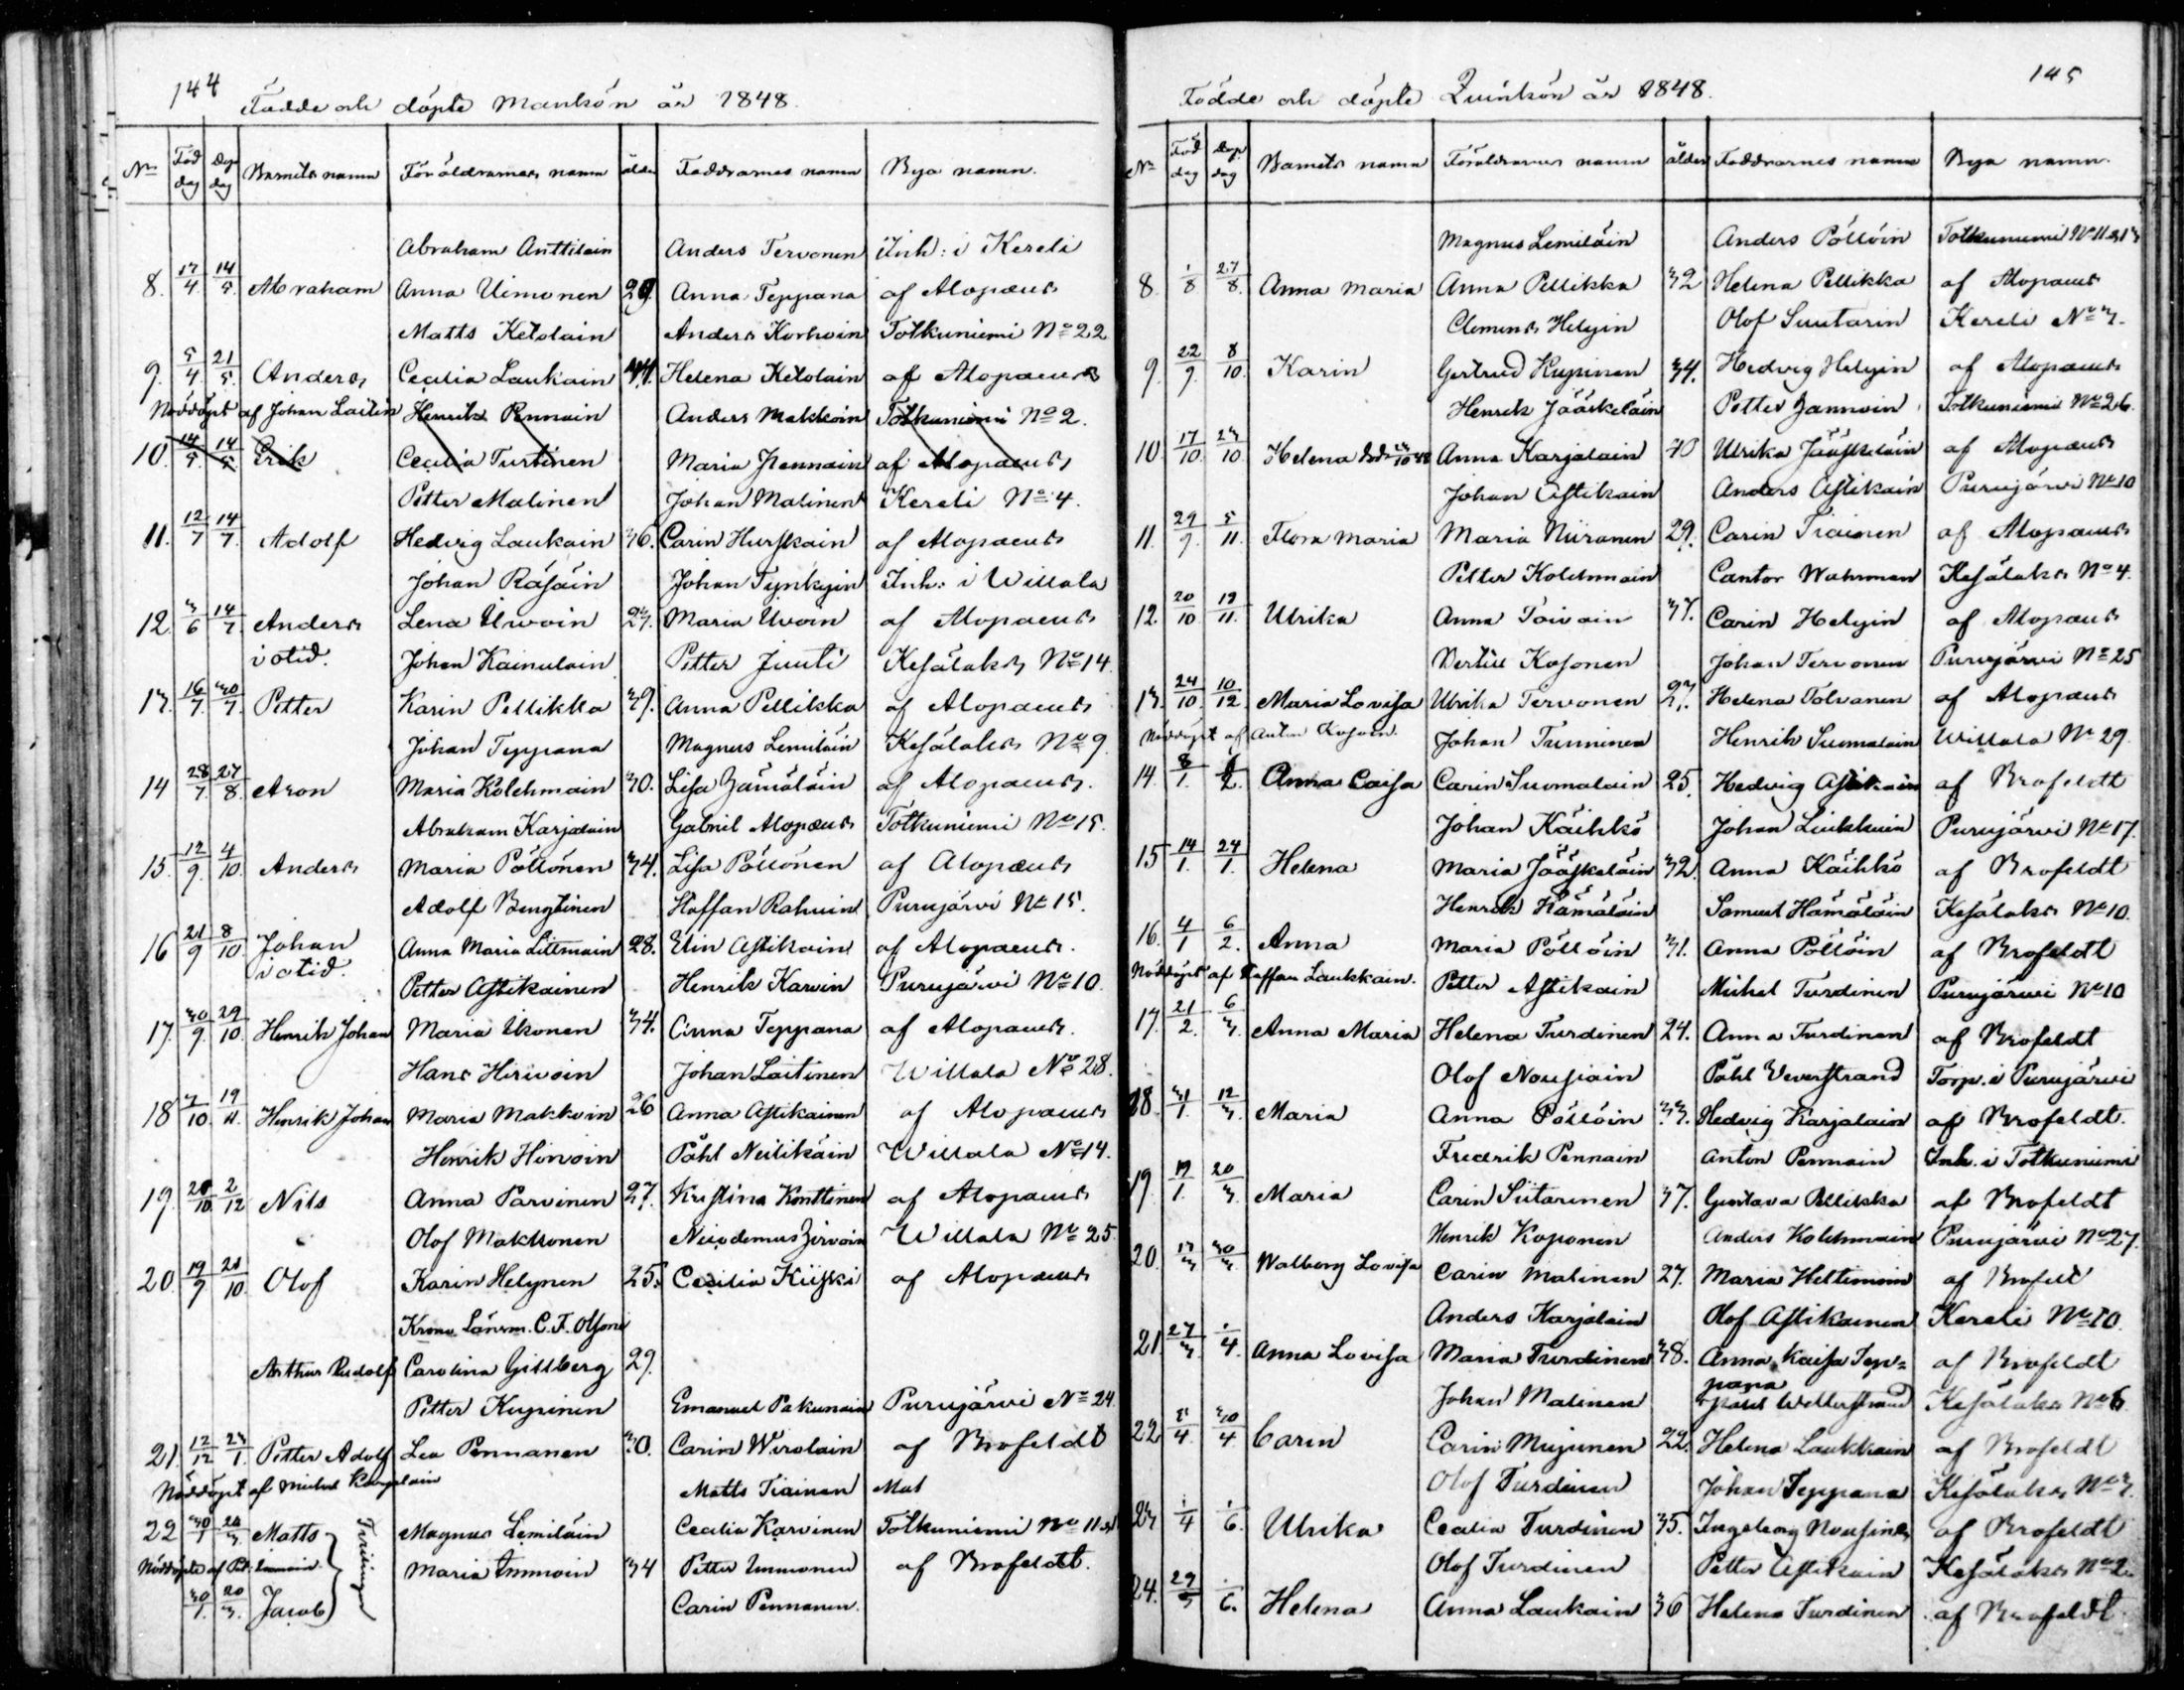 144
Födde och döpte Mankön år 1848.
No Föd dag Dop dag Barnets namn Föräldrarnas namn ålder Faddrarnes namn Bya namn.
Abraham Anttilain Anders Tervonen Inh: i Kereli
8. 17/4. 14/5. Abraham Anna Uimonen 29. Anna Teppana af Alopaeus
Matts Ketolain Anders Korhoin Totkuniemi No 22
9. 5/4. 21/5. Anders Cecilia Laukain 44. Helena Ketolain af Alopaeus
Nöddöpt af Johan Laitin Henrik Pennain Anders Makkoin Totkuniemi No 2.
10. 14/5. 14/5. Erik Cecilia Turtinen Maria Pennain af Alopaeus
Petter Malinen Johan Malinen Kereli No 4.
11. 12/7 14/7. Adolf Hedvig Laukain 36. Carin Hurskain af Alopaeus
Johan Räsäin Johan Tynkyin Inh: i Willala
12. 3/6 14/7. Anders Lena Uwoin 23. Maria Uvoin af Alopaeus
i otid. Johan Kainulain Petter Juuti Kesälaks No 14.
13. 16/7. 30/7. Petter Karin Pellikka 39. Anna Pellikka af Alopaeus
Johan Teppana Magnus Lemiläin Kesälaks No 9.
14 28/7. 27/8. Aron Maria Kolehmain 30. Lisa Hämäläin af Alopaeus.
Abraham Karjalain Gabriel Alopæus Totkuniemi No 15.
15. 12/9. 4/10. Anders Maria Pöllönen 34. Lisa Pöllönen af Alopæus
Adolf Bengtinen Staffan Rahuin Purujärvi No 15.
16 21/9 8/10. Johan Anna Maria Littmain 28. Elin Astikain af Alopaeus.
i otid. Petter Astikainen Henrik Karvin Purujärvi No 10.
17. 30/9. 29/10. Henrik Johan Maria Ikonen 34. Anna Teppana af Alopaeus.
Hans Hirvoin Johan Laitinen Willala No 28.
18 3/10. 19/11. Henrik Johan Maria Makkoin 26 Anna Astikainen af Alopaeus
Henrik Hirvoin Påhl Neilikäin Willala No 14.
19. 28/10. 2/12 Nils Anna Parvinen 27. Kristina Konttinen af Alopaeus
Olof Makkonen Nicodemus Hirvoin Willala No 25
20. 19/9 21/10. Olof Karin Helynen 25. Cecilia Kiiski af Alopaeus
Krono Länsm. C. F. Olsoni
Arthur Rudolf Carolina Gillberg 29.
Petter Kupinen Emanuel Pakunain Purujärvi No 24.
21. 12/12 23/1. Petter Adolf Lea Pennanen 30. Carin Wirolain af Brofeldt
Nöddöpt af Michel Karjalain Matts Tiainen Mat
22 30/1 20/3. Matts Magnus Lemiläin Cecilia Karvinen Totkuniemi No 11
Nöddöpte af Pet: Immoin. Trillingar Maria Immoin 34 Petter Immonen af Brofeldt.
30/1. 20/3. Jacob Carin Pennanen.
145
Födde och döpte Quinkön år 1848.
No Föd dag Dop dag Barnets namn Föräldrarnes namn ålder Faddrarnes namn Bya namn.
Magnus Lemiläin Anders Pöllöin Totkuniemi No 11
8. 1/8 27/8. Anna Maria Anna Pellikka 32 Helena Pellikka af Alopaeus
Clemens Helyin Olof Suutarin Kereli No 3.
9. 22/9. 8/10. Karin Gertrud Kupinen 34. Hedvig Helyin af Alopaeus
Henrik Jääskeläin Petter Jannoin Totkuniemi No 26.
10 17/10. 23/10. Helena Anna Karjalain 40 Ulrika Jääskeläin af Alopaeus
Johan Astikain Anders Astikain Purujärvi No 10
11. 29/9. 5/11. Flora Maria Maria Niiranen 29. Carin Tiainen af Alopaeus
Petter Kolehmain Cantor Wahrman Kesälaks No 4.
12. 20/10 19/11. Ulrika Anna Toivain 37. Carin Helyin af Alopaeus
Bertill Kosonen Johan Tervonen Purujärvi No 25
13. 24/10. 10/12. Maria Lovisa Ulrika Tervonen 23. Helena Tolvanen af Alopaeus
Nöddöpt af Anton Kosoin. Johan Tunninen Henrik Suomalain Willala No 29.
14. 8/1. 6/2. Anna Caisa Carin Suomalain 25. Hedvig Astikain af Brofeldt
Johan Käihkö Johan Liukkuin Purujärvi No 17.
15 14/1. 24/1. Helena Maria Jääskeläin 32. Anna Käihkö af Brofeldt
Henrik Hämäläin Samuel Hämäläin Kesälaks No 10.
16. 4/1 6/2. Anna Maria Pöllöin 31. Anna Pöllöin af Brofeldt
Nöddöpt af Staffan Laukkain. Petter Astikain Michel Turdinen Purujärwi No 10
17. 21/2. 6/3. Anna Maria Helena Turdinen 24. Anna Turdinen af Brofeldt
Olof Nousiain Påhl Weverstrand Torp. i Purujärwi
18. 31/1. 12/3. Maria Anna Pöllöin 33. Hedvig Karjalain af Brofeldt.
Fredrik Pennain Anton Pennain Inh. i Totkuniemi
19. 19/1. 20/3. Maria Carin Siitarinen 37. Gustava Pellikka af Brofeldt
Henrik Koponen Anders Kolehmain Purujärvi No 27.
20. 17/3 30/3. Walborg Lovisa Carin Malinen 27. Maria Heltimoin af Brofeld
Anders Karjalain Olof Astikainen Kereli No 10.
21 27/3 1/4. Anna Lovisa Maria Turdinen 38. Anna Kaisa Tep= af Brofeldt
pana
Johan Malinen Påhl Wetterstrand Kesälaks No 6
22 5/4. 30/4 Carin Carin Mujunen 22. Helena Laukkain af Brofeldt
Olof Turdinen Johan Teppana Kesälaks No 3.
23 1/4 1/6. Ulrika Cecilia Turdinen 35. Ingeborg Nousin af Brofeldt
Olof Turdinen Petter Astikain Kesälaks No 2.
24. 29/5 6. Helena Anna Laukain 36 Helena Turdinen af Brofeldt